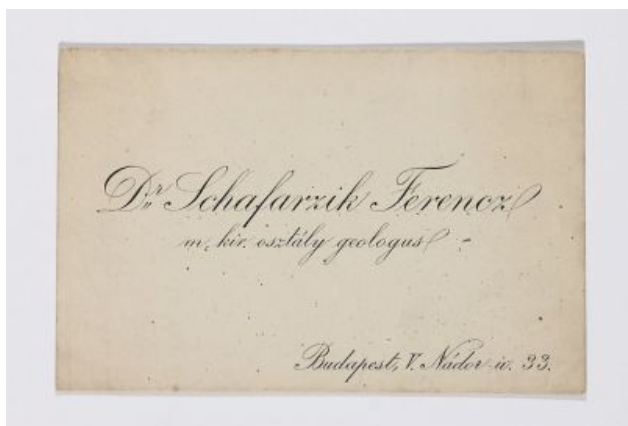 Dr. Schafarzik Ferencz
m. kir. osztály geologus
Budapest, V. Nádor-u. 33.